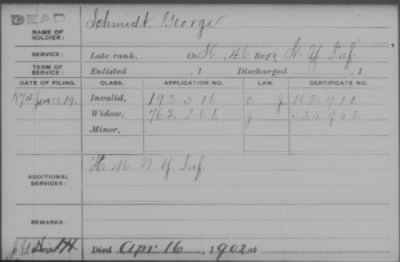 DEAD
NAME OF SOLDIER: Schmidt George
SERVICE: Late rank, Co. H, 46 Reg't N. Y. Inf.
TERM OF SERVICE: Enlisted , 1 Discharged , 1
DATE OF FILING. CLASS. APPLICATION NO. LAW. CERTIFICATE NO.
Invalid,
Widow, 762,261
Minor,
ADDITIONAL SERVICES: H 46 N. Y. Inf.
REMARKS:
Died Apr 16, 1902, at